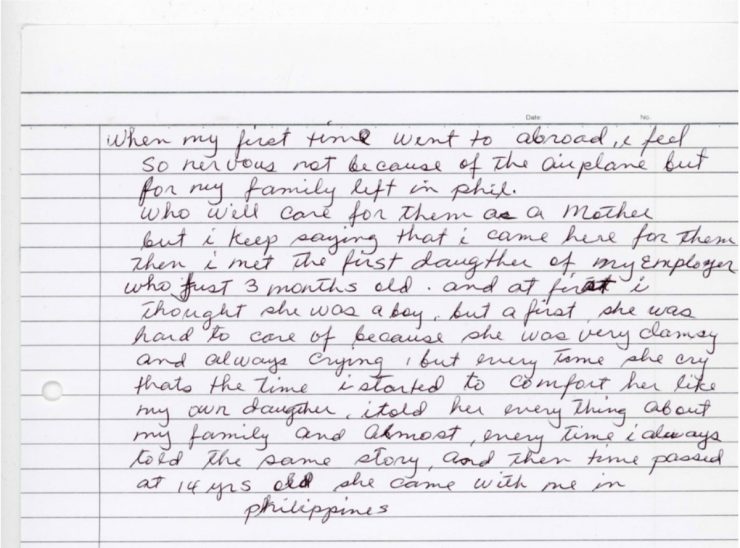 Date No.
When my first time went to abroad, i feel
so nervous not because of the airplane but
for my family left in phil.
who will care for them as a Mother
but i keep saying that i came here for them
then i met the first daugther of my Employer
who just 3 months old. and at first i
thought she was a boy, but a first she was
hard to care of because she was very clamsy
and always crying, but every time she cry
thats the time i started to comfort her like
my own daugther, i told her every thing about
my family and Almost, every time i always
told the same story, and then time passed
at 14 yrs old she came with me in
philippines